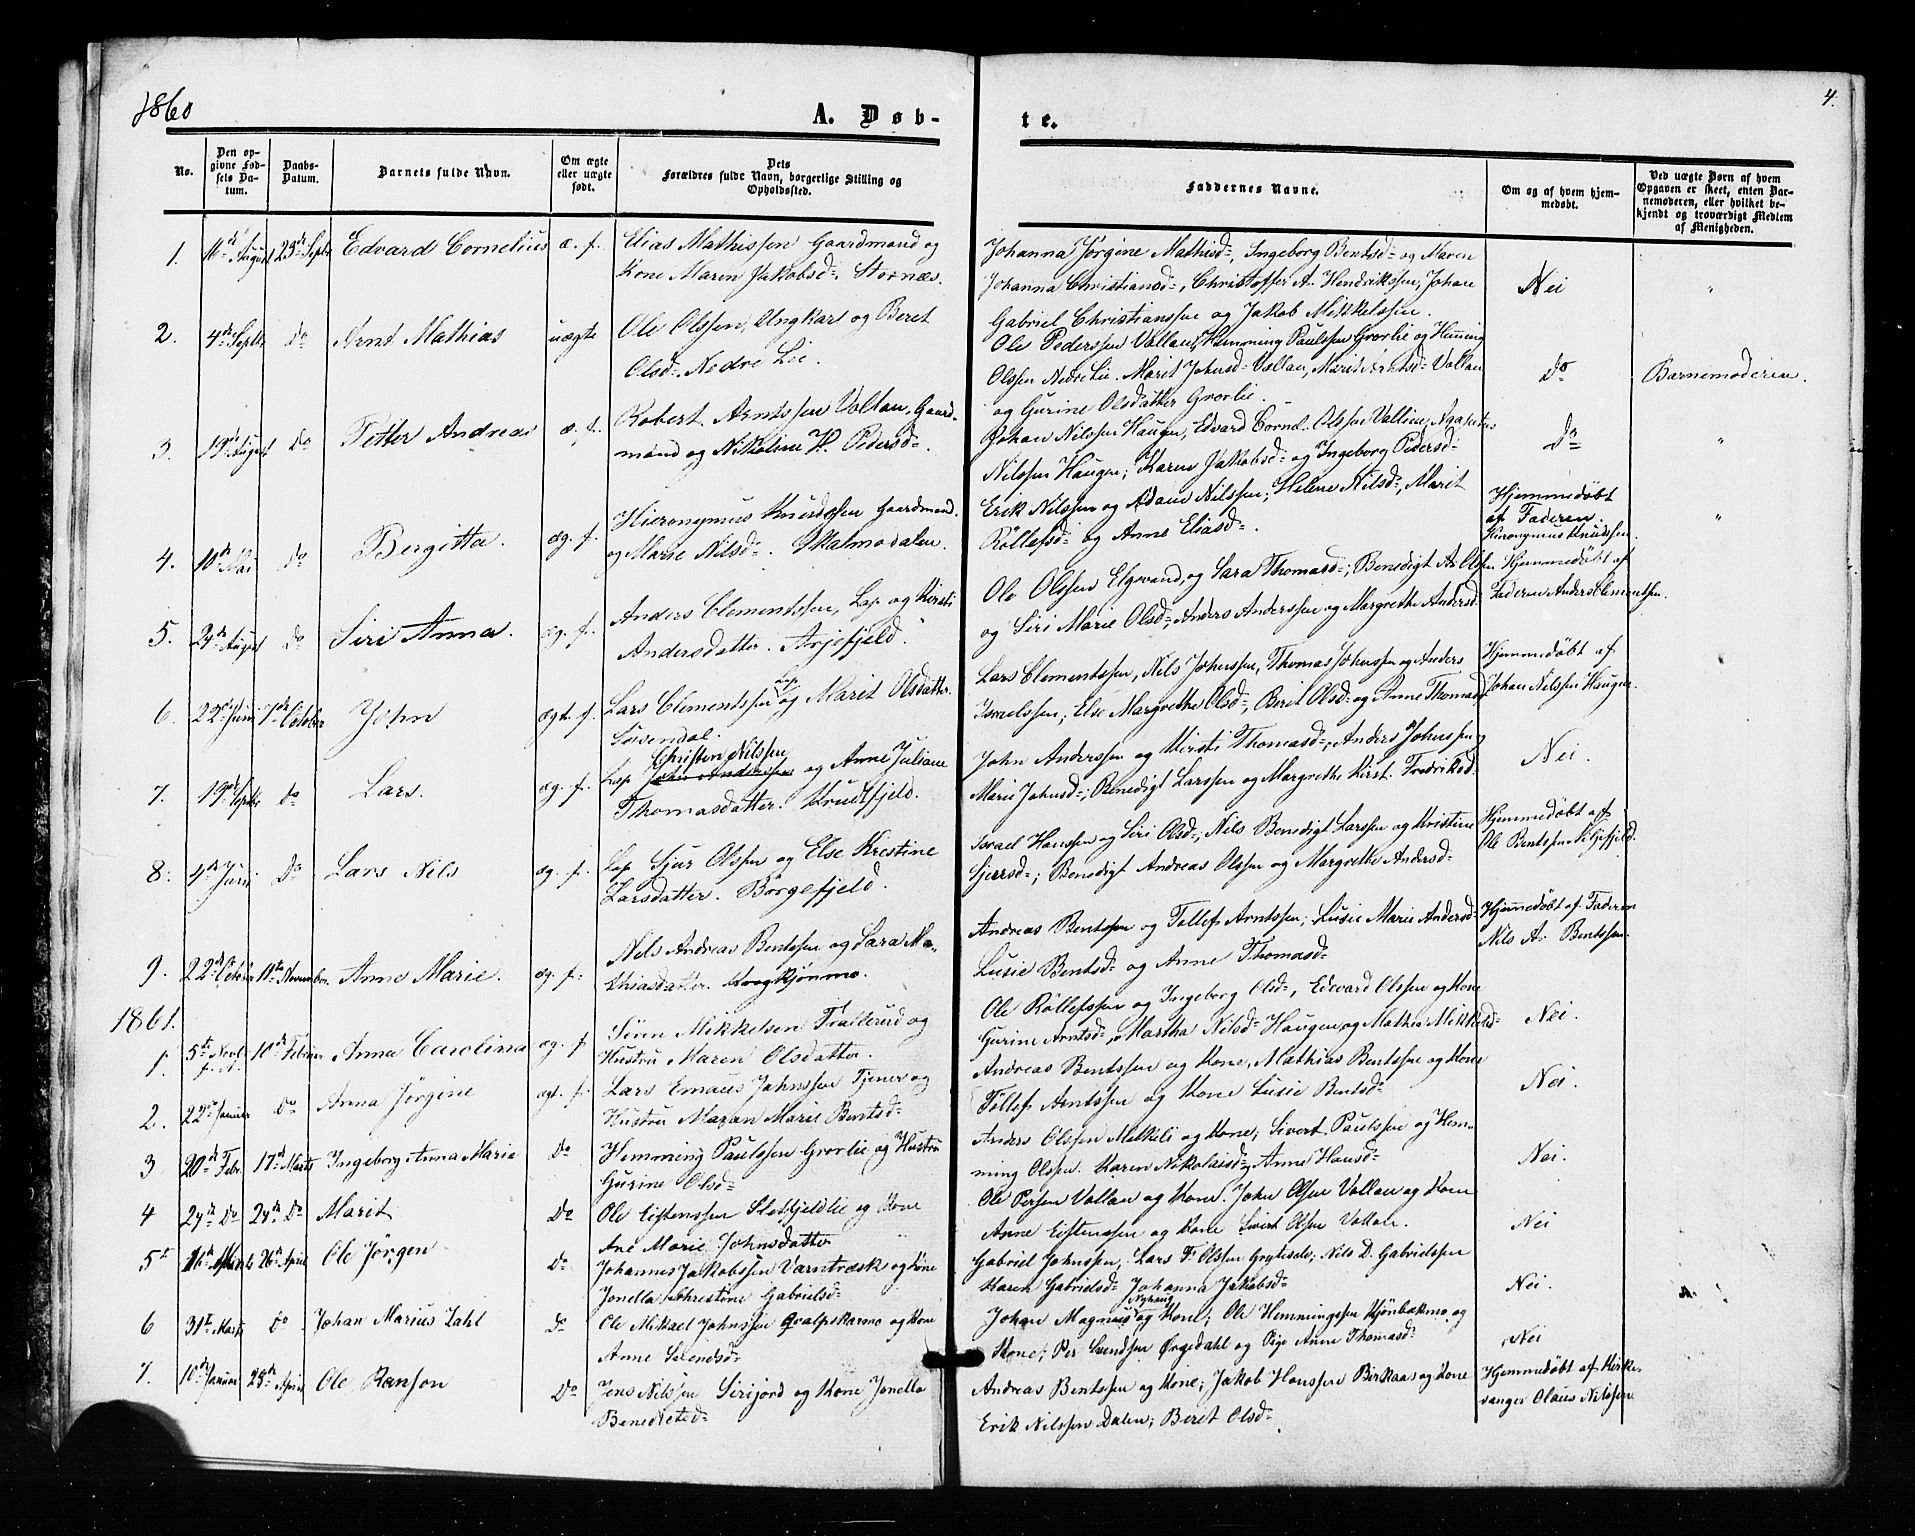 1860
A. Døb-
te.
4.
No.
Den op-
givne Fød-
sels Da-
tum.
Daabs-
Datum.
Barnets fulde Navn.
Om ægte
eller uægte
født.
Dets
Forældres fulde Navn, borgerlige Stilling og
Opholdssted.
Faddernes Navne.
Om og af hvem hjem-
medøbt.
Ved uægte Børn af hvem
Opgaven er skeet, enten Bar-
nemoderen, eller hvilket be-
kjendt og troværdigt Medlem
af Menigheden.
1. 16de August 23de Septbr Edvard Cornelius æ. f. Elias Mathissen Gaardmand og
Kone Maren Jakobsd. Stornæs.
Johanna Jørgine Mathisd., Ingeborg Bentsd. og Maren
Johanna Christiansd., Christoffer A. Hendrikssen, Johan
Gabriel Christianssen og Jakob Mikkelssen.
Nei "
2. 4de Septbr do Arnt Mathias uægte Ole Olssen, Ungkar og Beret
Olsd. Nedre Lie.
Ole Pederssen Vallan, Hemming Paulssen Grorlie og Hemming
Olssen Nedre Lie. Marit Johnsd. Vallan, Marit Arntsd. Vallan
og Gurine Olsdatter Grorlie.
Do Barnemoderen.
3. 19de August Do Petter Andreas æ. f. Robert Arntssen Voltan, Gaard-
mand og Nikoline H. Pedersd.
Johan Nilssen Haugen, Edvard Cornel. Olssen Vallien, Agapetus
Nilssen Haugen; Karen Jakobsd. og Ingeborg Pedersd.
Do "
4. 10de Mai do Bergitta. æg. f. Hieronymus Knudssen Gaardmand.
og Marie Nilsd. Skalmodalen.
Erik Nilssen og Adam Nilssen; Helene Nilsd., Marit
Röllefsd. og Anne Eliasd.
Hjemmedöbt
af Faderen
Hieronymus Knudssen. "
5. 24de August do Siri Anna. æg. f. Anders Clementssen, Lap og Kirsti
Andersdatter. Arjefjeld.
Ole Olssen Elgvand, og Sara Thomasd., Benedigt A. Olssen
og Siri Marie Olsd., Anders Anderssen og Margrethe Andersd.
Hjemmedöbt af
Faderen Anders Clementsen.
6. 22de Juni 7de October John ægt. f. Lars Clementssen Lap og Marit Olsdatter.
Susendal.
Lars Clementssen, Nils Johnssen, Thomas Johnssen og Anders
Israelssen; Else Margrethe Olsd., Beret Olsd. og Anne Thomasd.
Hjemmedöbt af
Johan Nilssen Haugen.
7. 19de Septbr do Lars. æg. f. Lap Christen Nilssen og Anne Juliane
Thomasdatter. Krutfjeld.
John Anderssen og Kirsti Thomasd., Anders Johnssen og
Marie Johnsd.; Benedigt Larssen og Margrethe Kirst. Fredriksd.
Nei.
8. 4de Juni Do Lars Nils æg. f. Lap Sjur Olssen og Else Krestine
Larsdatter. Börgefjeld.
Israel Hanssen og Siri Olsd.; Nils Benedigt Larssen og Kristine
Sjursd.; Benedigt Andreas Olssen og Margrethe Andersd.
Hjemmedöbt af
Ole Bentssen
9. 22de October 11te November Anne Marie. æg. f. Nils Andreas Bentssen og Sara Ma-
thiasdatter.
Andreas Bentssen og Tollef Arntssen; Lusie Marie Andersd.
Lusie Bentsd. og Anne Thomasd.
Hjemmedöbt af Faderen
Nils A. Bentssen.
1861.
1. 5te Novbr f. A. 10de Februar Anna Carolina æg. f. Sönn Mikkelsen Trallerud og
Hustru Maren Olsdatter.
Ole Röllefssen og Ingeborg Olsd., Edevard Olssen og Kone
Gurine Arntsd., Martha Nilsd. Haugen, og Mathea Mikkelsd.
Nei.
2. 22de Januar Do Anna Jörgine ægt. f. Lars Emaus Jahnssen Tjener og
Hustru Mazan Marie Bentsd.
Andreas Bentssen og Kone, Mathias Bentssen og Kone
Töllef Arntssen og Kone Lusie Bentsd.
Nei.
3 20de Febr. 17de Marts Ingeborg Anna Marie Do Hemming Paulssen Grorlie og Hustru
Gurine Olsd.
Anders Olssen Mikkeli og Kone; Sivert Paulssen og Hem-
ming Olssen. Karen Nikolaisd., Anne Hansd.
Nei.
4 24de Do 28de Do Marit Do Ole Eistenssen Sletfjeldlie og Kone
Ane Marie Johnsdatter
Ole Persen Vallan og Kone. John Olsen Vollan og Kone
Anne Eistenssen og Kone Sivert Olsen Vollan.
Nei
5 16de Marts 26de April Ole Jörgen Do Johannes Jakobssen Varntræsk og Kone
Jonella Chrestine Gabrielsd.
Gabriel Johnssen, Lars P. Olssen Grytselv; Nils D. Gabrielssen
Karen Gabrielsd. Johanna Jakobsd.
Nei
6 31te Marts Do Johan Marius Zahl Do Ole Mikael Johnssen og Kone
Anne Svendsd.
Johan Magnus Nyhaug og Kone; Ole Hemmingssen Kjönbakmo og
Kone; Per Svendsen Örgedahl og Pige Anne Thomasd.
Nei
7. 10de Januar 28de April Ole Ranson Do Jens Nilssen Sirijord og Kone Jonella
Benedictsd.
Andreas Bentssen og Kone; Jakob Hanssen Birkaas og Kone
Erik Nilssen Dalen; Beret Olsd.
Hjemmedöbt af Kirke-
sanger Olaus Nilssen